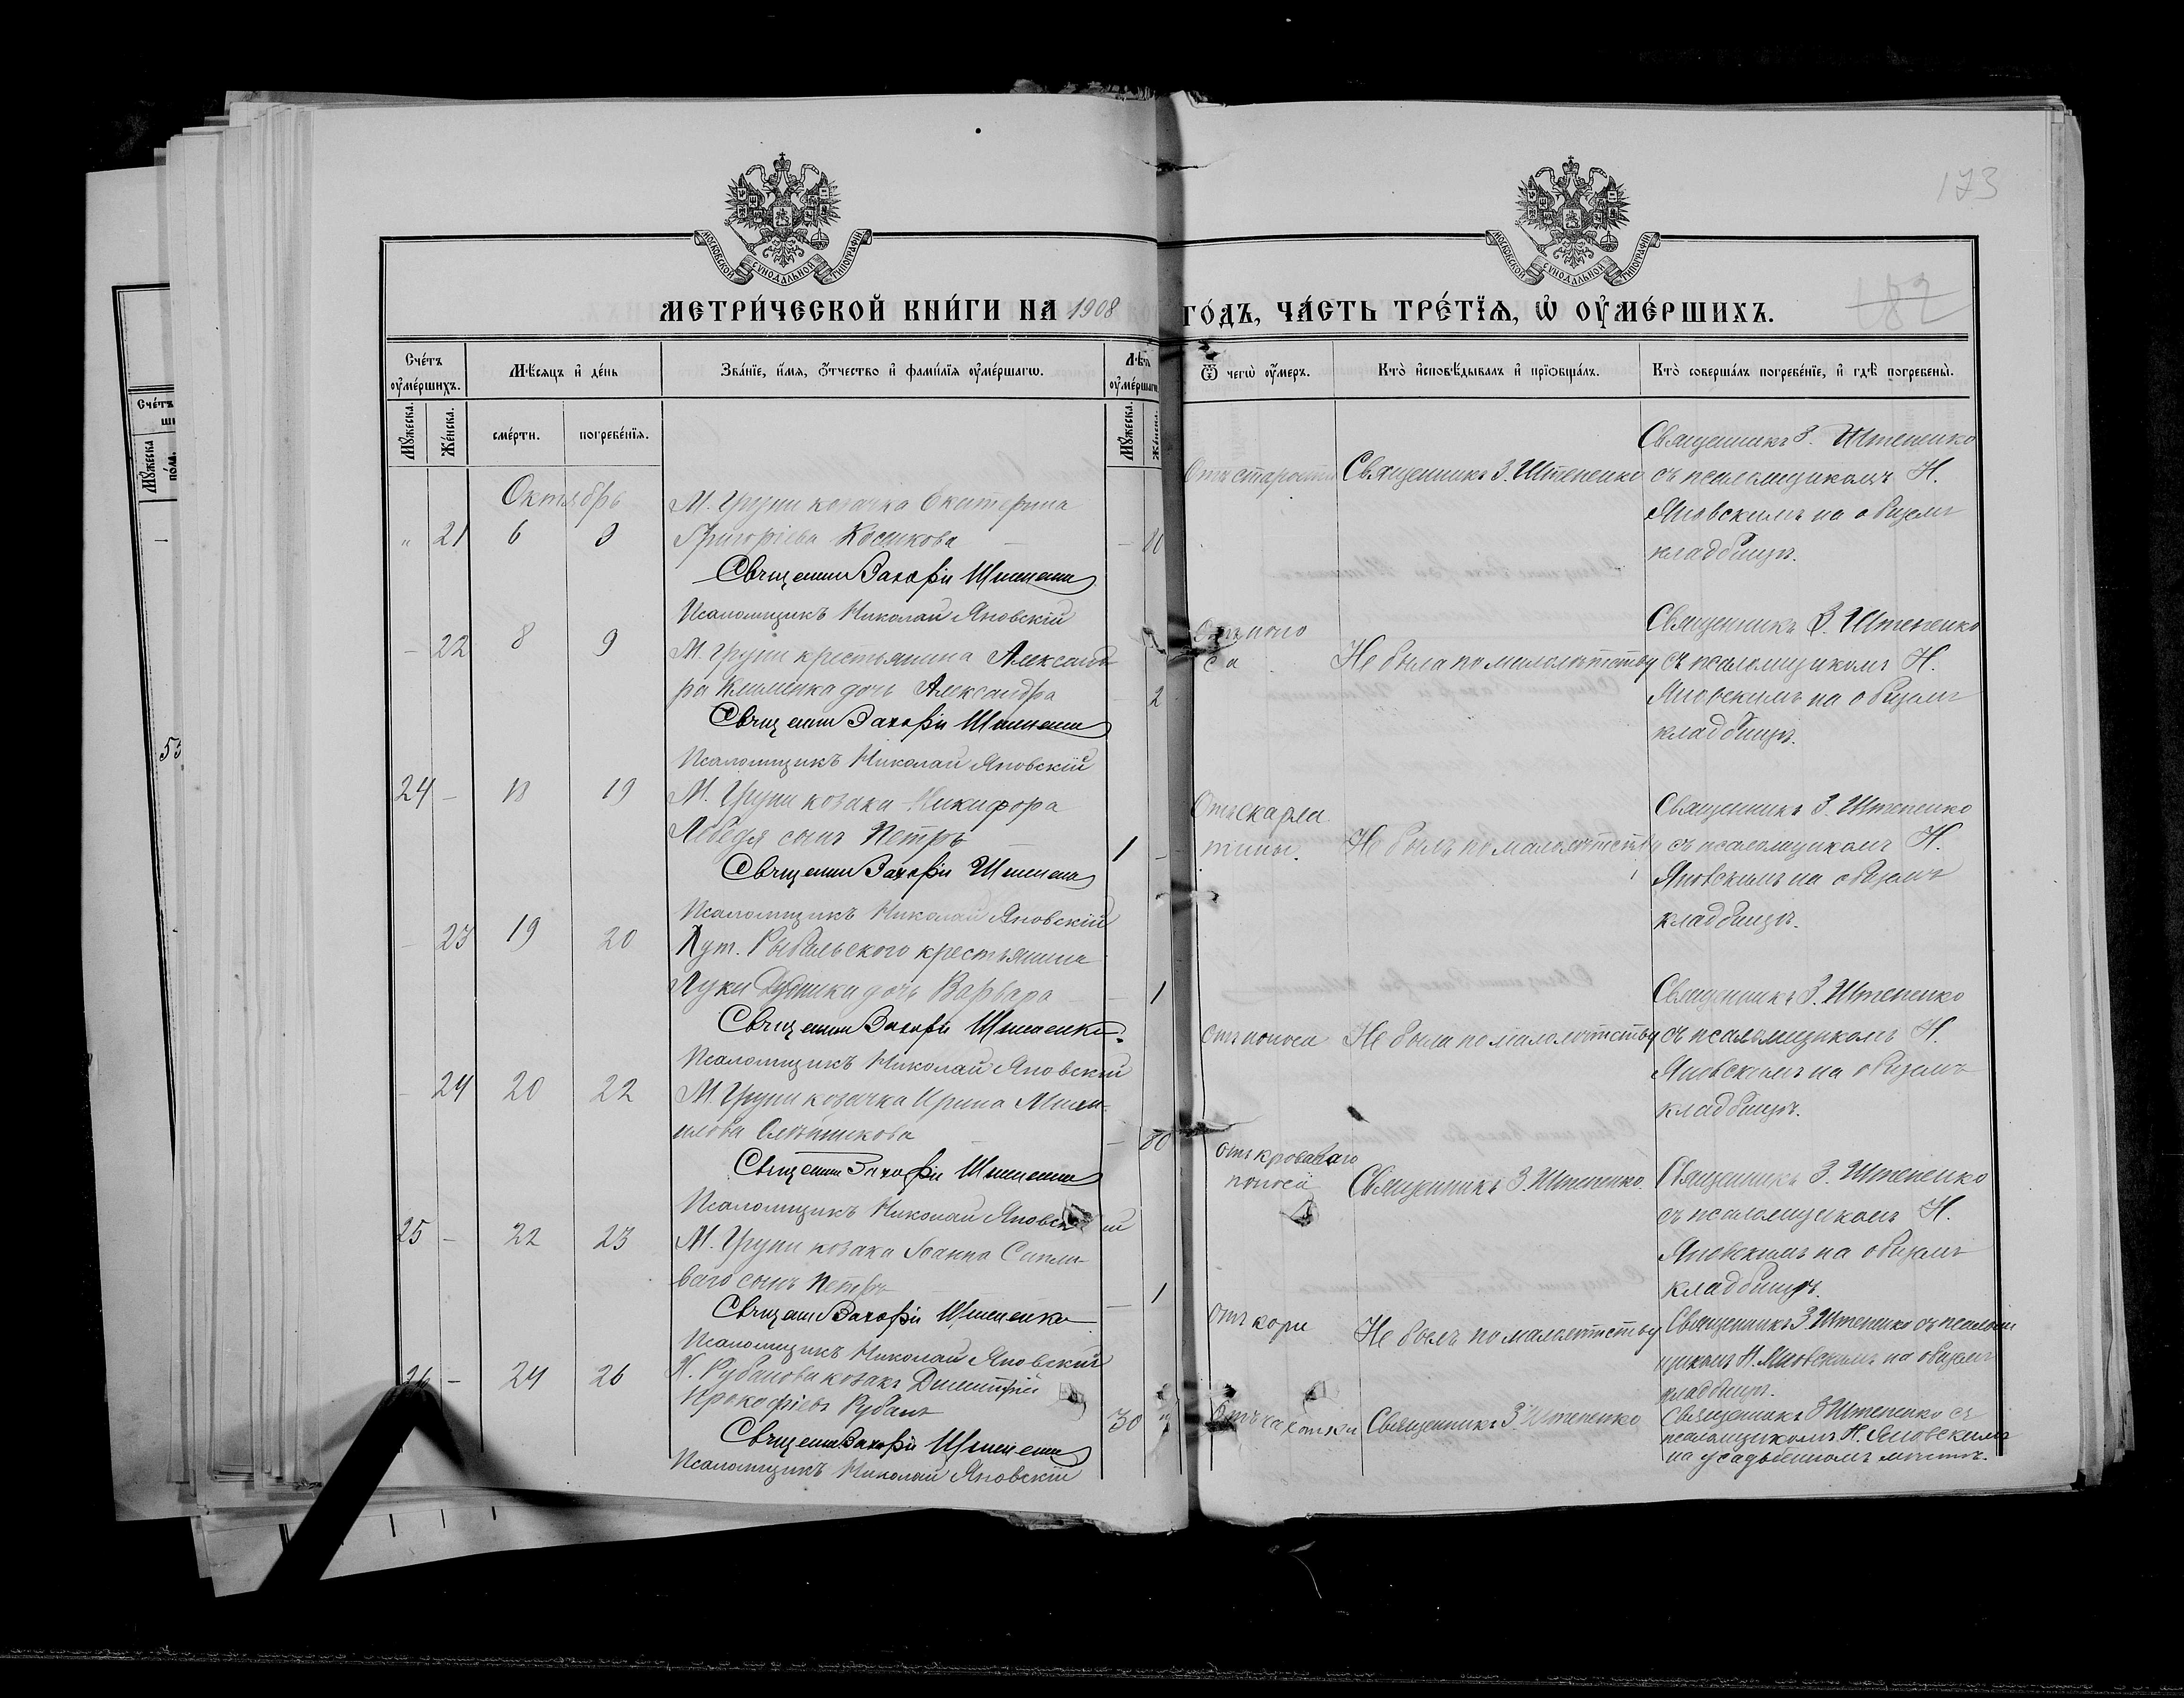 173
182
МОСКОВСКОЙ СѴНОДАЛЬНОЙ ТИПОГРАФІИ
МОСКОВСКОЙ СѴНОДАЛЬНОЙ ТИПОГРАФІИ
МЕТРИ́ЧЕСКОЙ КНИ́ГИ НА 1908 ГО́ДЪ, ЧА́СТЬ ТРЕ́ТЇѦ, Ѡ҆ ОУ҆МЕ́РШИХЪ.
Сче́тъ оу҆ме́ршихъ.
Мѣ́сяцъ и҆ де́нь
Зва́нїе, и҆́мя, ѻ҆́тчество и҆ фами́лїя оу҆ме́ршагѡ.
Лѣ́та оу҆ме́ршагѡ
Ѿ чегѡ̀ оу҆́меръ.
Кто̀ и҆сповѣ́дывалъ и҆ прїѡбща́лъ.
Кто̀ соверша́лъ погребе́нїе, и҆ гдѣ̀ погребены̀.
Мꙋ́жеска.
Же́нска.
сме́рти.
погребе́нїя.
Мꙋ́жеска.
Же́нска.
Октябрь
" 21 6 9
М. Груни козачка Екатерина
Григоріева Косикова — 80
Священник Захарій Штепенко
Псаломщикъ Николай Яновскій
Отъ старости
Священникъ З. Штепенко
Священникъ З. Штепенко
съ псаломщикомъ Н.
Яновскимъ на общемъ
кладбищѣ.
— 22 8 9
М. Груни крестьянина Александ
ра Клименка дочь Александра — 2
Священник Захарій Штепенко
Псаломщикъ Николай Яновскій
Отъ поно
са
Не была по малолѣтству
Священникъ З. Штепенко
съ псаломщикомъ Н.
Яновскимъ на общемъ
кладбищѣ.
24 — 18 19
М. Груни козака Никифора
Лебедя сынъ Петръ — 1 —
Священник Захарій Штепенко
Псаломщикъ Николай Яновскій
Отъ скарла
тины.
Не былъ по малолѣтству
Священникъ З. Штепенко
съ псаломщикомъ Н.
Яновскимъ на общемъ
кладбищѣ.
— 23 19 20
Хут. Рыбальского крестьянина
Луки дочь Варвара — 1
Священник Захарій Штепенко
Псаломщикъ Николай Яновскій
Отъ поноса
Не была по малолѣтству
Священникъ З. Штепенко
съ псаломщикомъ Н.
Яновскимъ на общемъ
кладбищѣ.
— 24 20 22
М. Груни козачка Ирина Михаи-
лова — 80
Священник Захарій Штепенко
Псаломщикъ Николай Яновскій
Отъ кроваваго
поноса
Священникъ З. Штепенко.
Священникъ З. Штепенко
съ псаломщикомъ Н.
Яновскимъ на общемъ
кладбищѣ.
25 — 22 23
М. Груни козака Іоанна Сипли-
ваго сынъ Петръ — 1
Священник Захарій Штепенко
Псаломщикъ Николай Яновскій
Отъ кори
Не былъ по малолѣтству
Священникъ З. Штепенко съ псалом
щикомъ Н. Яновскимъ на общемъ
кладбищѣ.
26 — 24 26
Х. Рубанова козакъ Димитрій
Прокофіевъ Рубанъ 30
Священник Захарій Штепенко
Псаломщикъ Николай Яновскій
Отъ чахотки
Священникъ З. Штепенко
Священникъ З Штепенко съ
псаломщикомъ Н. Яновскимъ
на усадьбенномъ мѣстѣ.
Сче́тъ
Мꙋ́жеска
53